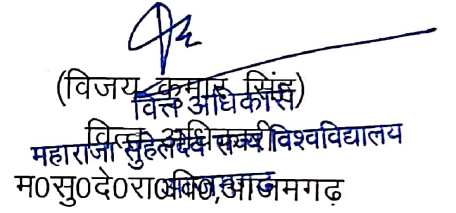 (विजय कुमार सिंह)
वित्त अधिकारी
वित्त अधिकारी
महाराजा सुहेलदेव राज्य विश्वविद्यालय
म0सु0दे0रा0वि0,आजमगढ़
आजमगढ़